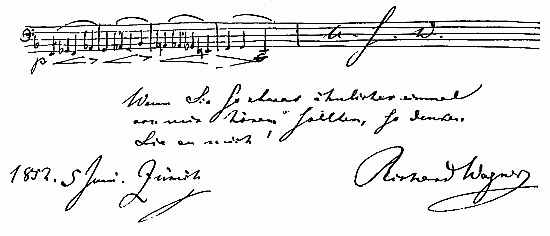 p u. s. w.
Wenn Sie so etwas ähnliches einmal
von mir hören sollten, so denken
Sie an mich!
1852. 5 Juni. Zürich Richard Wagner